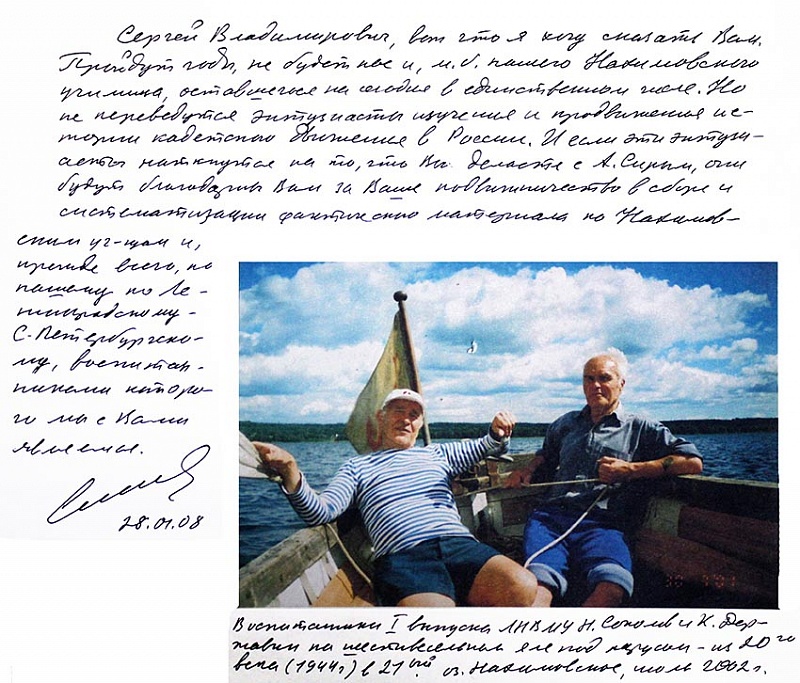 Сергей Владимирович, вот что я хочу сказать Вам.
Пройдут годы, не будет нас и, м.б. нашего Нахимовского
училища, оставшегося на сегодня в единственном числе. Но
не переведутся энтузиасты изучения и продвижения ис-
тории кадетского движения в России. И если эти энтузи-
асты наткнутся на то, что Вы делаете с А.Сирым, они
будут благодарны Вам за Ваше подвижничество в сборе и
систематизации фактического материала по Нахимов-
ским уч-щам и,
прежде всего, по
нашему по Ле-
нинградскому-
С-Петербургско-
му, воспитан-
никами которо-
го мы с Вами
являемся.
28.01.08
Воспитанники I выпуска ЛНВМУ Н. Соколов и К. Дер-
жавин на шестивесельном яле под парусом - из 20го
века (1944г) в 21ый. оз. Нахимовское, июль 2002г.